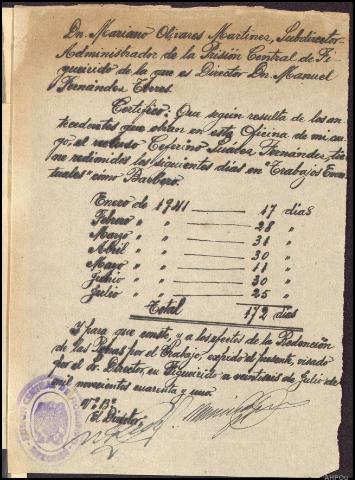 Dn. Mariano Olivares Martinez, Subdirector-
Administrador de la Prisión Central de Fi-
gueirido de la que es Director Dn. Manuel
Fernández Torres.
Certifico: Que según resulta de los an-
tecedentes que obran en esta Oficina de mi car-
go, el recluso Ceferino Suárez Fernández, tie-
ne redimidos los siguientes días en "Trabajos Even-
tuales" como Barbero.
Enero de 1941 — 17 días
Febrero " " — 28 "
Marzo " " — 31 "
Abril " " — 30 "
Mayo " " — 11 "
Junio " " — 30 "
Julio " " — 25 "
Total 172 días
Y para que conste, y a los efectos de la Redención
de las Penas por el Trabajo, expido el presente, visado
por el Sr. Director, en Figueirido a veintiseis de Julio de
mil novecientos cuarenta y uno.
Vº Bº
El Director,
AHPOu